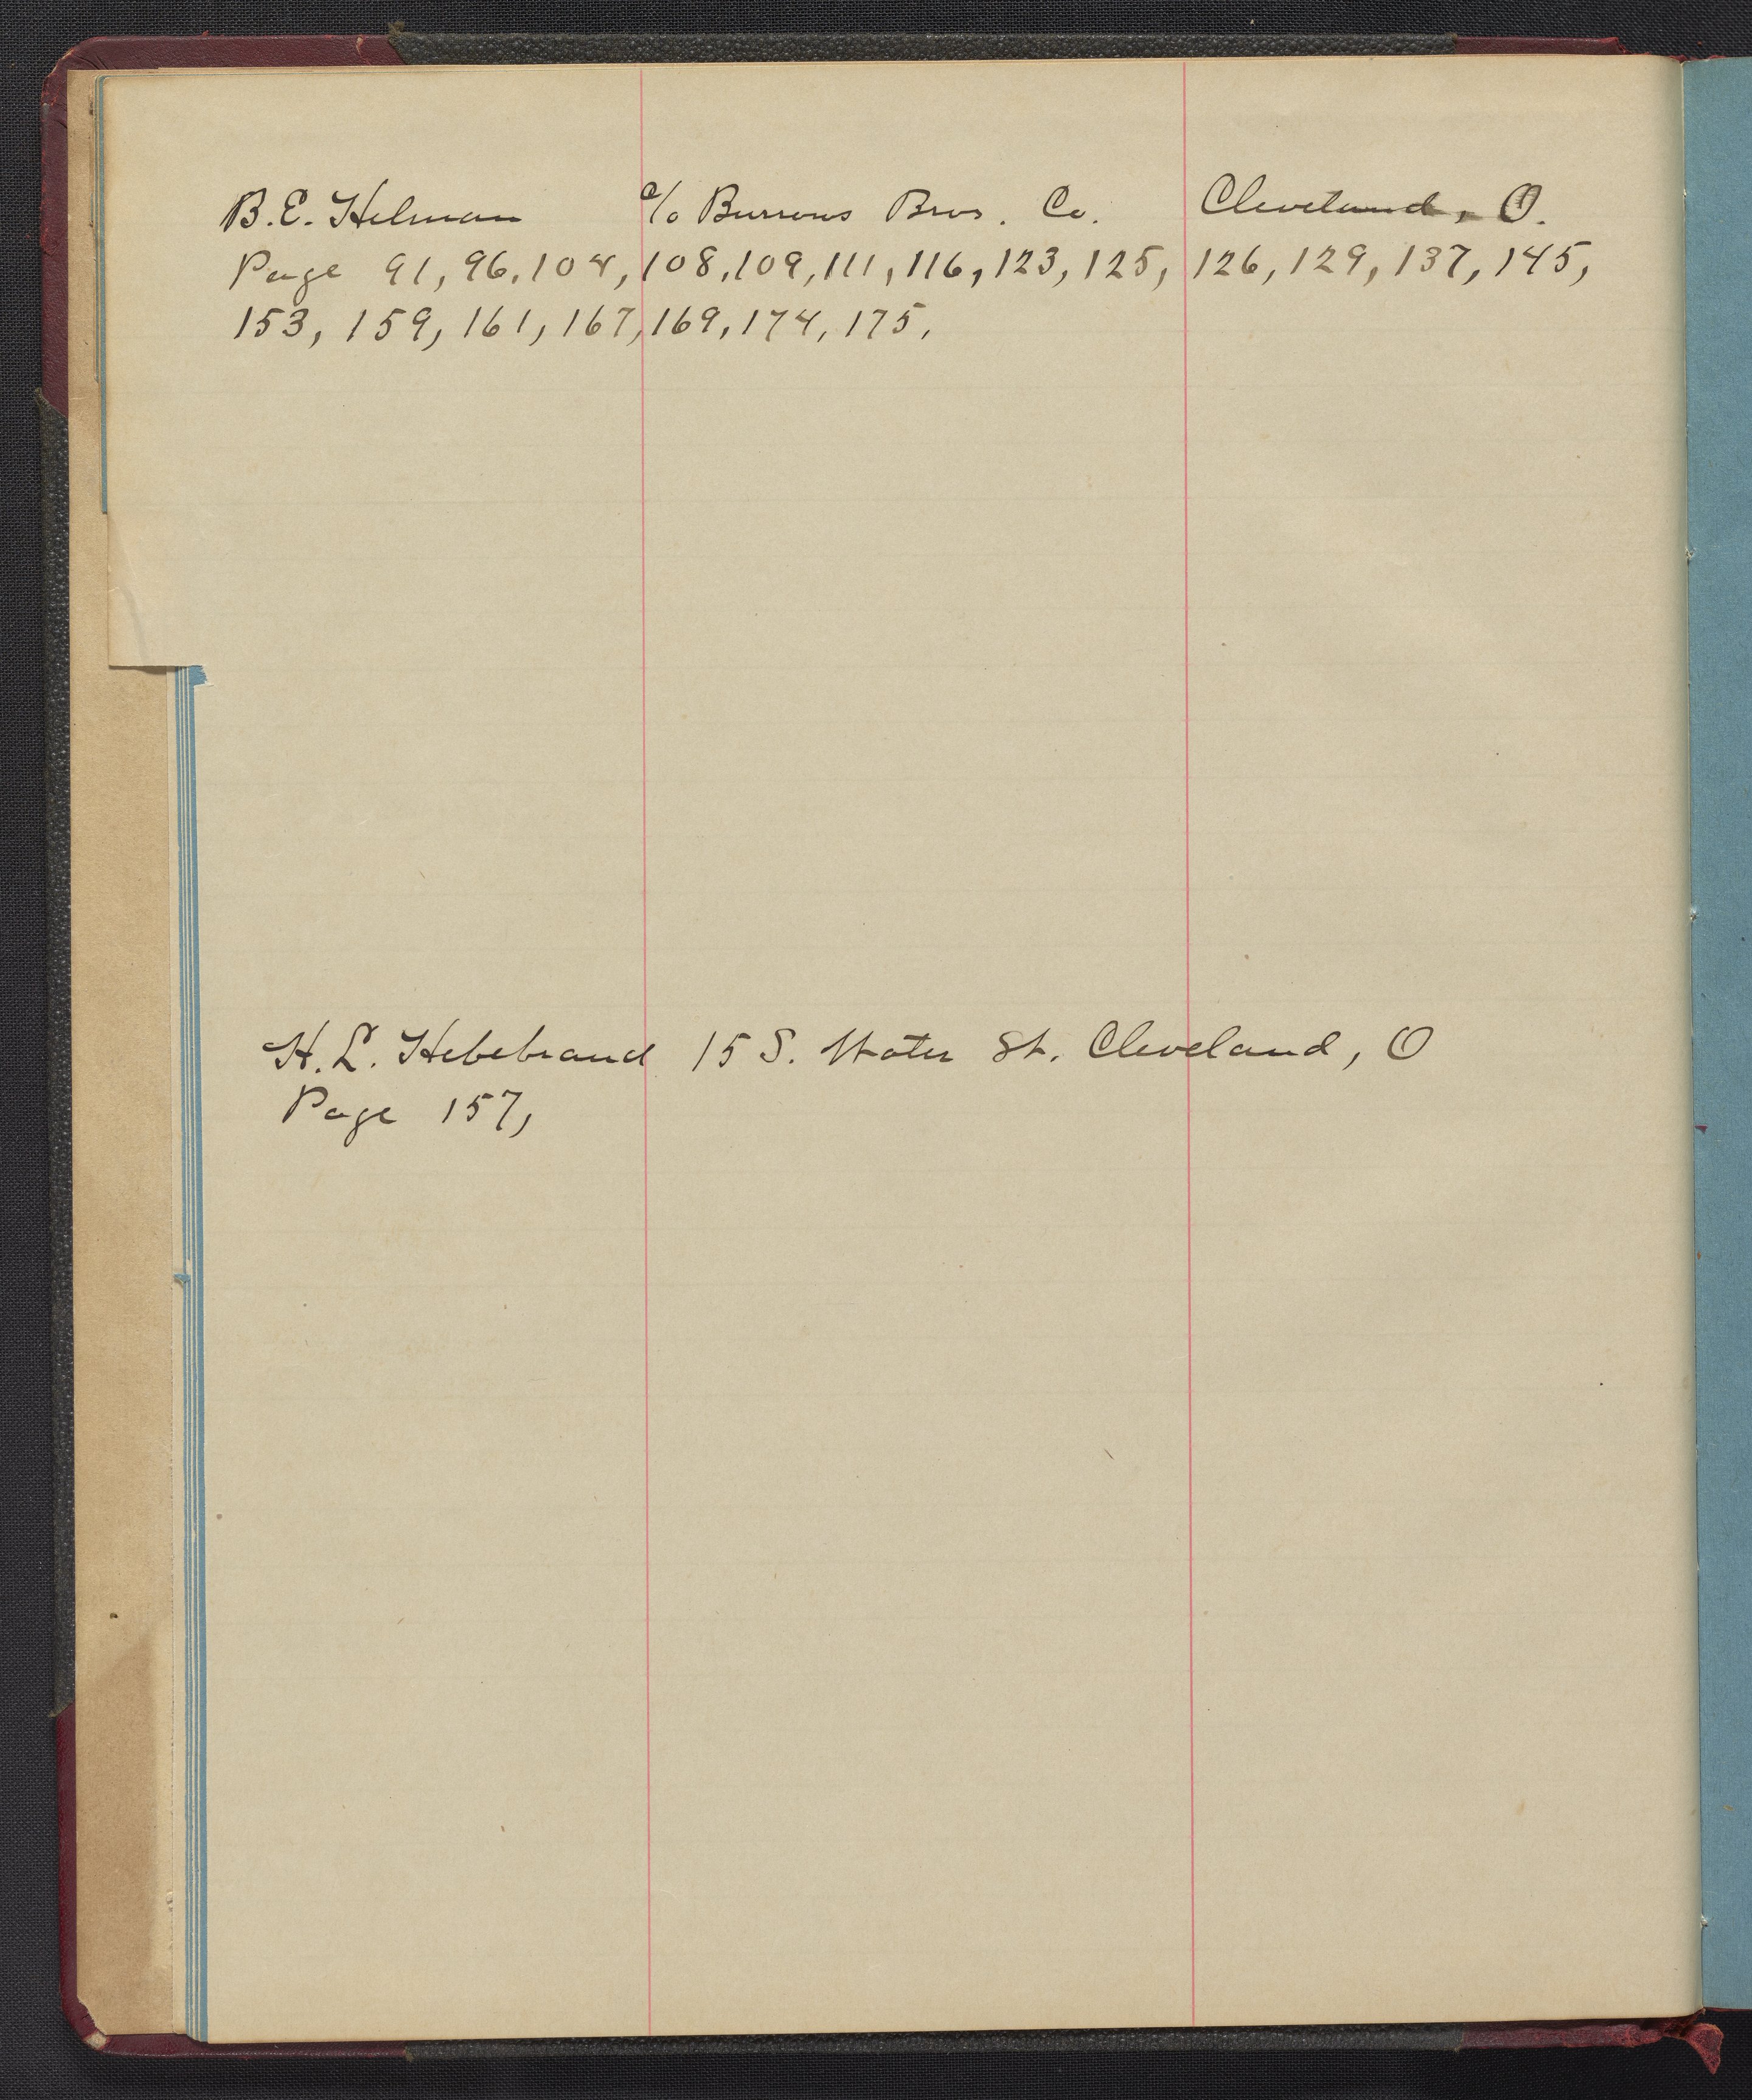 B. E. Helman c/o Burrows Bros. Co. Cleveland, O.
Page 91, 96, 104, 108, 109, 111, 116, 123, 125, 126, 129, 137, 145,
153, 159, 161, 167, 169, 174, 175,
H. L. Hebebrand 15 S. Water St. Cleveland, O
Page 157,